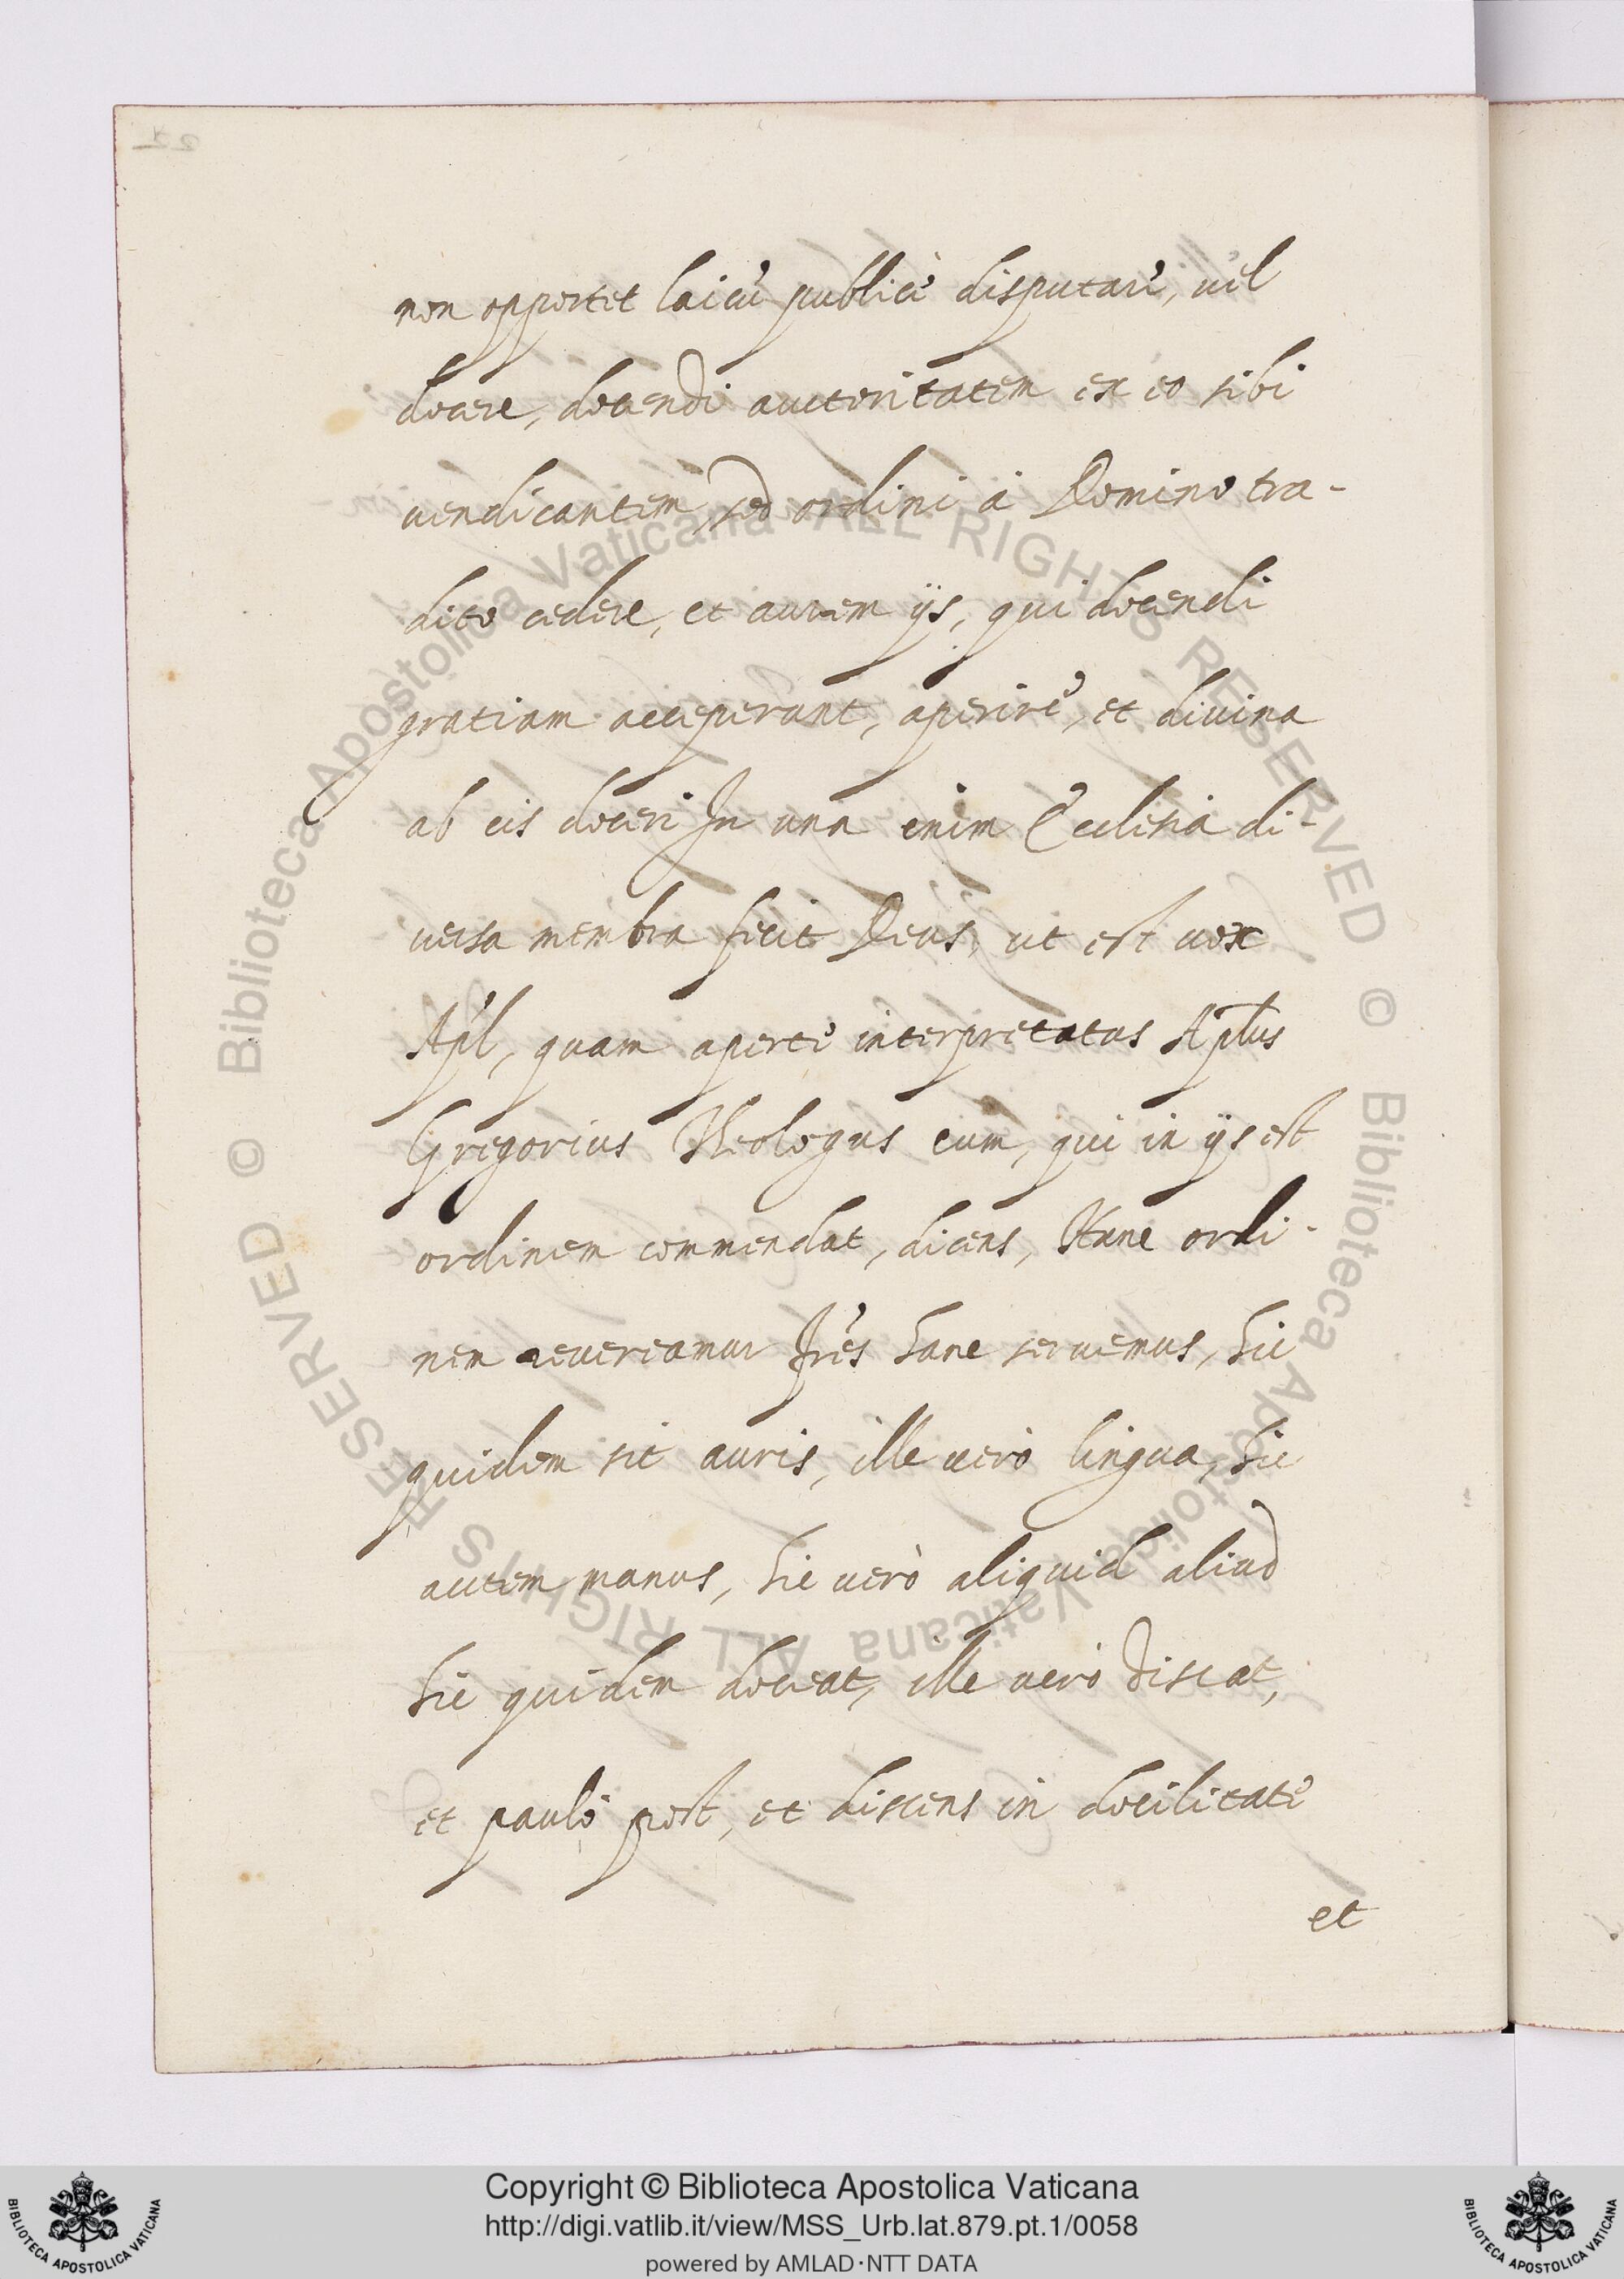 non opportet laicũ publicè disputare, uel
docere, docendi auctoritatem ex eo sibi
uendicantem, sed ordini à Domino tra-
dito cedere, et aurem ijs, qui docendi
gratiam acceperunt, aperire, et diuina
ab eis doceri In una enim Ecclesia di-
uersa membra fecit Deus, ut est uox
Apl, quam apertè interpretatus Aplus
Gregorius Theologus eum, qui in ijs est
ordinem commendat, dicens, Hunc ordi-
nem reuereamur frẽs hanc seruemus, hic
quidem sit auris, ille uerò lingua, hic
autem manus, hic uerò aliquid aliud
hic quidem doceat, ille uerò discat,
et paulò post, et discens in docilitate
et
Copyright © Biblioteca Apostolica Vaticana
http://digi.vatlib.it/view/MSS_Urb.lat.879.pt.1/0058
powered by AMLAD·NTT DATA
BIBLIOTECA APOSTOLICA VATICANA
BIBLIOTECA APOSTOLICA VATICANA
© Biblioteca Apostolica Vaticana ALL RIGHTS RESERVED
© Biblioteca Apostolica Vaticana ALL RIGHTS RESERVED